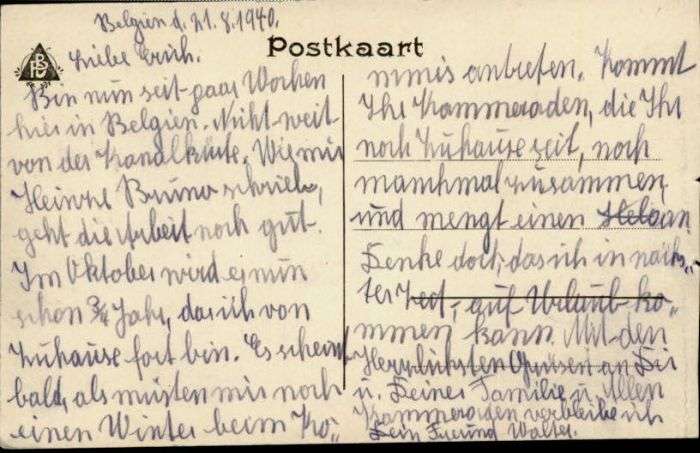 Belgien d. 21.8.1940.
Postkaart
Liebe Erich.
Bin nun seit paar Wochen
hier in Belgien. Nicht weit
von der Kanalküste. Wie mir
Heinzel Bruno schrieb,
geht die Arbeit noch gut.
Im Oktober wird es nun
schon ¾ Jahr, das ich von
Zuhause fort bin. Es scheint
bald, als müsten wir noch
einen Winter beim Ko=
mmis antreten. Kommt
Ihr Kammeraden, die Ihr
noch Zuhause seit, noch
manchmal zusammen,
und mengt einen an.
Denke doch, das ich in nächs=
ter Zeit, auf Urlaub ko=
mmen kann. Mit den
Herzlichsten Grüsen an Dir
u. Deiner Familie u. Allen
Kammeraden verbleibe ich
Dein Freund Walter.